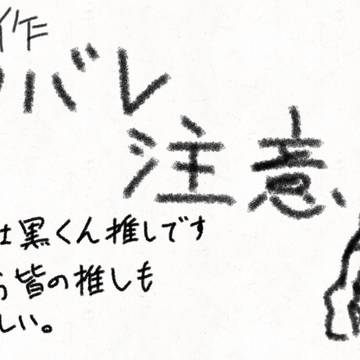 作
バレ
注意
黒くん推しです
皆の推しも
しい。